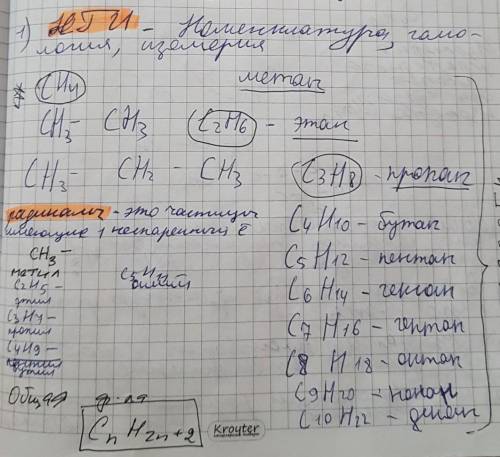 1) НГИ - Номенклатура, гомо-
логия, изомерия
CH4 метан
CH3 - CH3 C2H6 - этан
CH3 - CH2 - CH3 C3H8 - пропан
радикалы - это частицы
имеющие 1 неспаренный ē
CH3 -
метил
C2H5 -
этил
C3H7 -
пропил
C4H9 -
бутил
C4H10 - бутан
C5H12 - пентан
C6H14 - гексан
C7H16 - гептан
C8H18 - октан
C9H20 - нонан
C10H22 - декан
Общая ф-ла
CnH2n+2
Kroyter